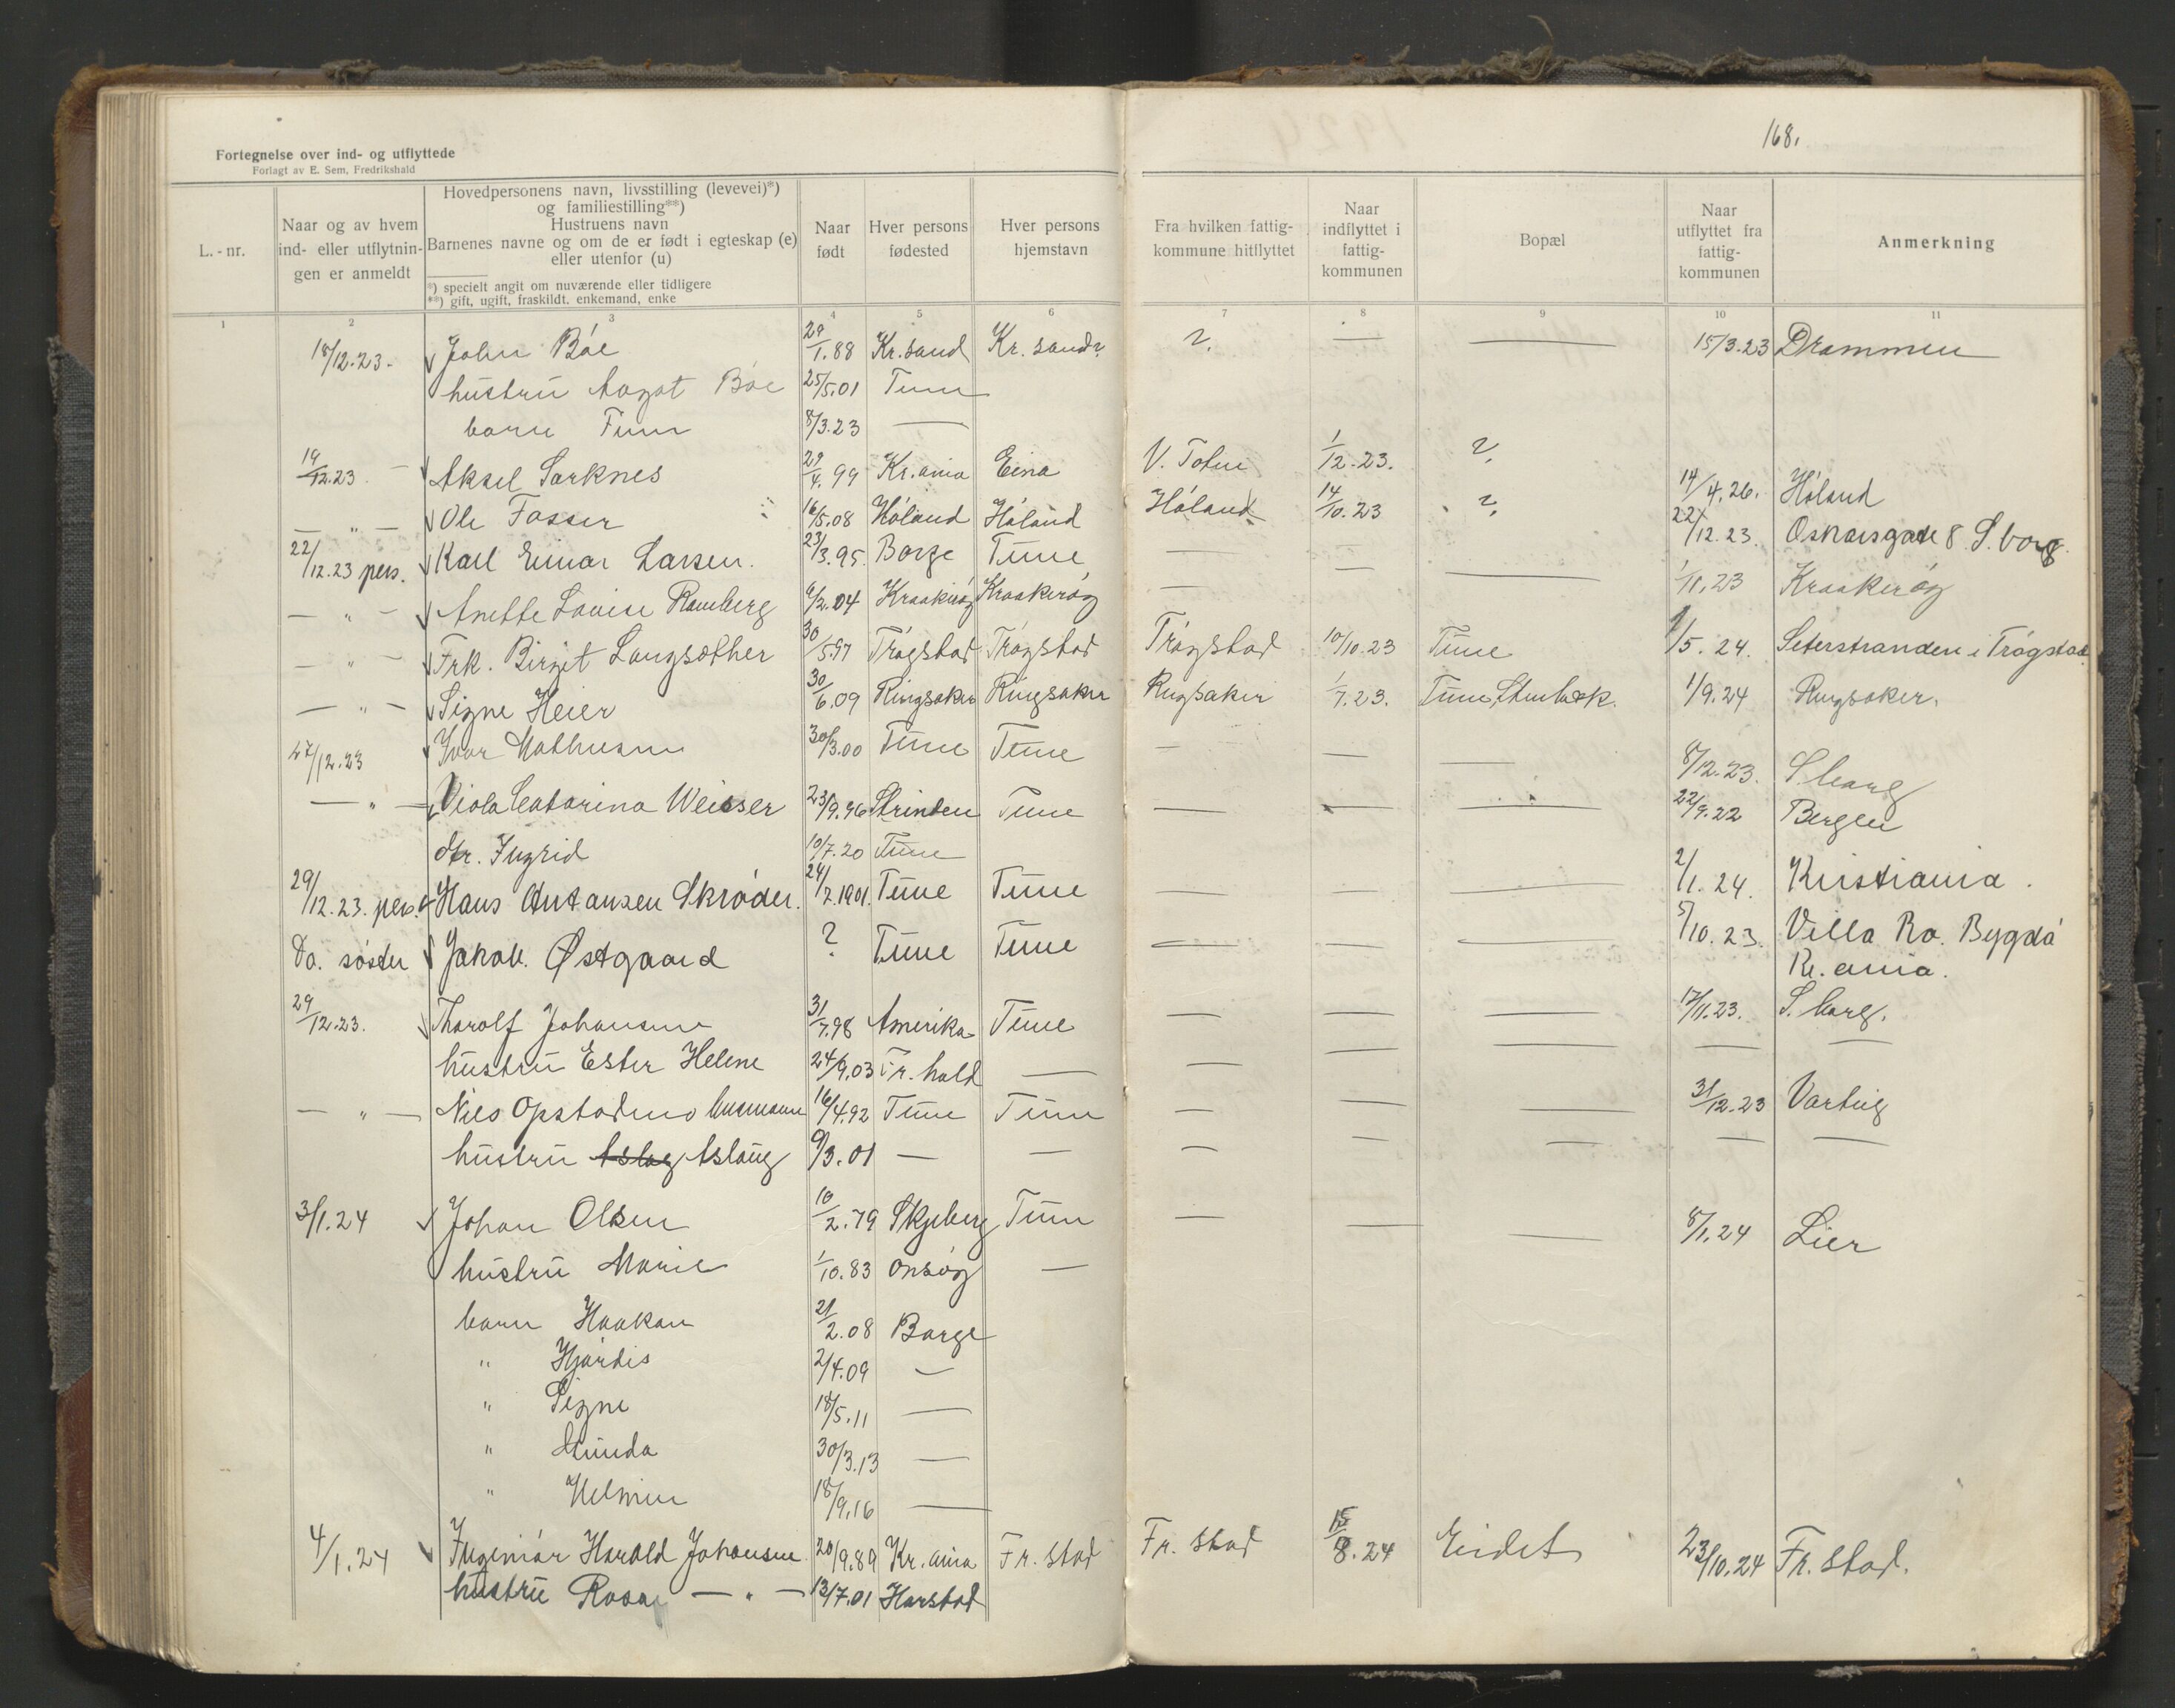 168.
Fortegnelse over ind- og utflyttede
Forlagt av E. Sem, Fredrikshald
L.-nr.
Naar og av hvem ind- eller utflytnin- gen er anmeldt
Hovedpersonens navn, livsstilling (levevei)*) og familiestilling**)
Hustruens navn
Barnenes navne og om de er født i egteskap (e) eller utenfor (u)
*) specielt angit om nuværende eller tidligere
**) gift, ugift, fraskildt, enkemand, enke
Naar født
Hver persons fødested
Hver persons hjemstavn
Fra hvilken fattig- kommune hitflyttet
Naar indflyttet i fattig- kommunen
Bopæl
Naar utflyttet fra fattig- kommunen
Anmerkning
1 2 3 4 5 6 7 8 9 10 11
18/12.23. John Bóe 29/1.88 Kr.sand Kr. sand? ?. — — 15/3.23 Drammen
hustru Aagot Bóe 25/5.01 Tune
barn Finn 8/3.23 —
19/12.23 Aksel Sarknes 29/4.99 Kr.ania Eina V. Toten 1/12.23. ?.
— " — Ole Fosser 16/5.08 Hóland Hóland Hóland 14/10.23 ?. 14/4.26. Hóland
22/12.23 pers. Karl Einar Larsen. 23/3.95. Borge Tune — — 22/12.23. Oskarsgate 8 S.borg.
— " — Anette Louise Ramberg 9/2.04 Kraakeróy Kraakeróy — — — 1/11.23 Kraakeróy
— " — Frk. Birgit Langsæther 30/5.97 Trógstad Trógstad Trógstad 10/10.23 Tune 1/5.24. Seterstranden i Trógstad
— " — Signe Heier 30/6.09 Ringsaker Ringsaker Ringsaker 1/7.23. Tune, Stenbæk. 1/9.24 Ringsaker.
27/12.23 Ivar Mathisen 30/3.00 Tune Tune — — — 8/12.23. S.borg
— " — Viola Catarina Weisser 23/9.96 Strinden Tune — — — 22/9.22 Bergen
dtr. Ingrid 10/7.20 Tune
29/12.23. pers. Hans Antonsen Skróder. 24/2.1901. Tune Tune — — — 2/1.24. Kristiania.
Do. sóster Jakob Østgaard ? Tune Tune — — — 5/10.23. Villa Ro. Bygdó
Kr.ania.
29/12.23. Thorolf Johansen 31/7.98 Amerika Tune — — — 17/11.23. S.borg.
hustru Ester Helene 24/9.03 Fr.hald — — — — — —
— " — Nils Opstad 16/4.92 Tune Tune — — — 31/12.23 Varteig
hustru Aslaug 9/3.01 — — — — — — —
3/1.24 Johan Olsen 10/2.79 Skjeberg Tune — — — 8/1.24 Lier
hustru Marie 1/10.83 Onsóy —
barn Haakon 21/2.08 Borge
" Hjórdis 2/4.09 —
" Signe 18/5.11 —
" Minda 30/3.13 —
" Helmin 18/9.16 —
4/1.24 Ingemar Harald Johansen 20/9.89 Kr.ania Fr.stad Fr.stad 8.24 Eidet 23/10.24 Fr.stad.
hustru Rosa — " — 13/7.01 Harstad